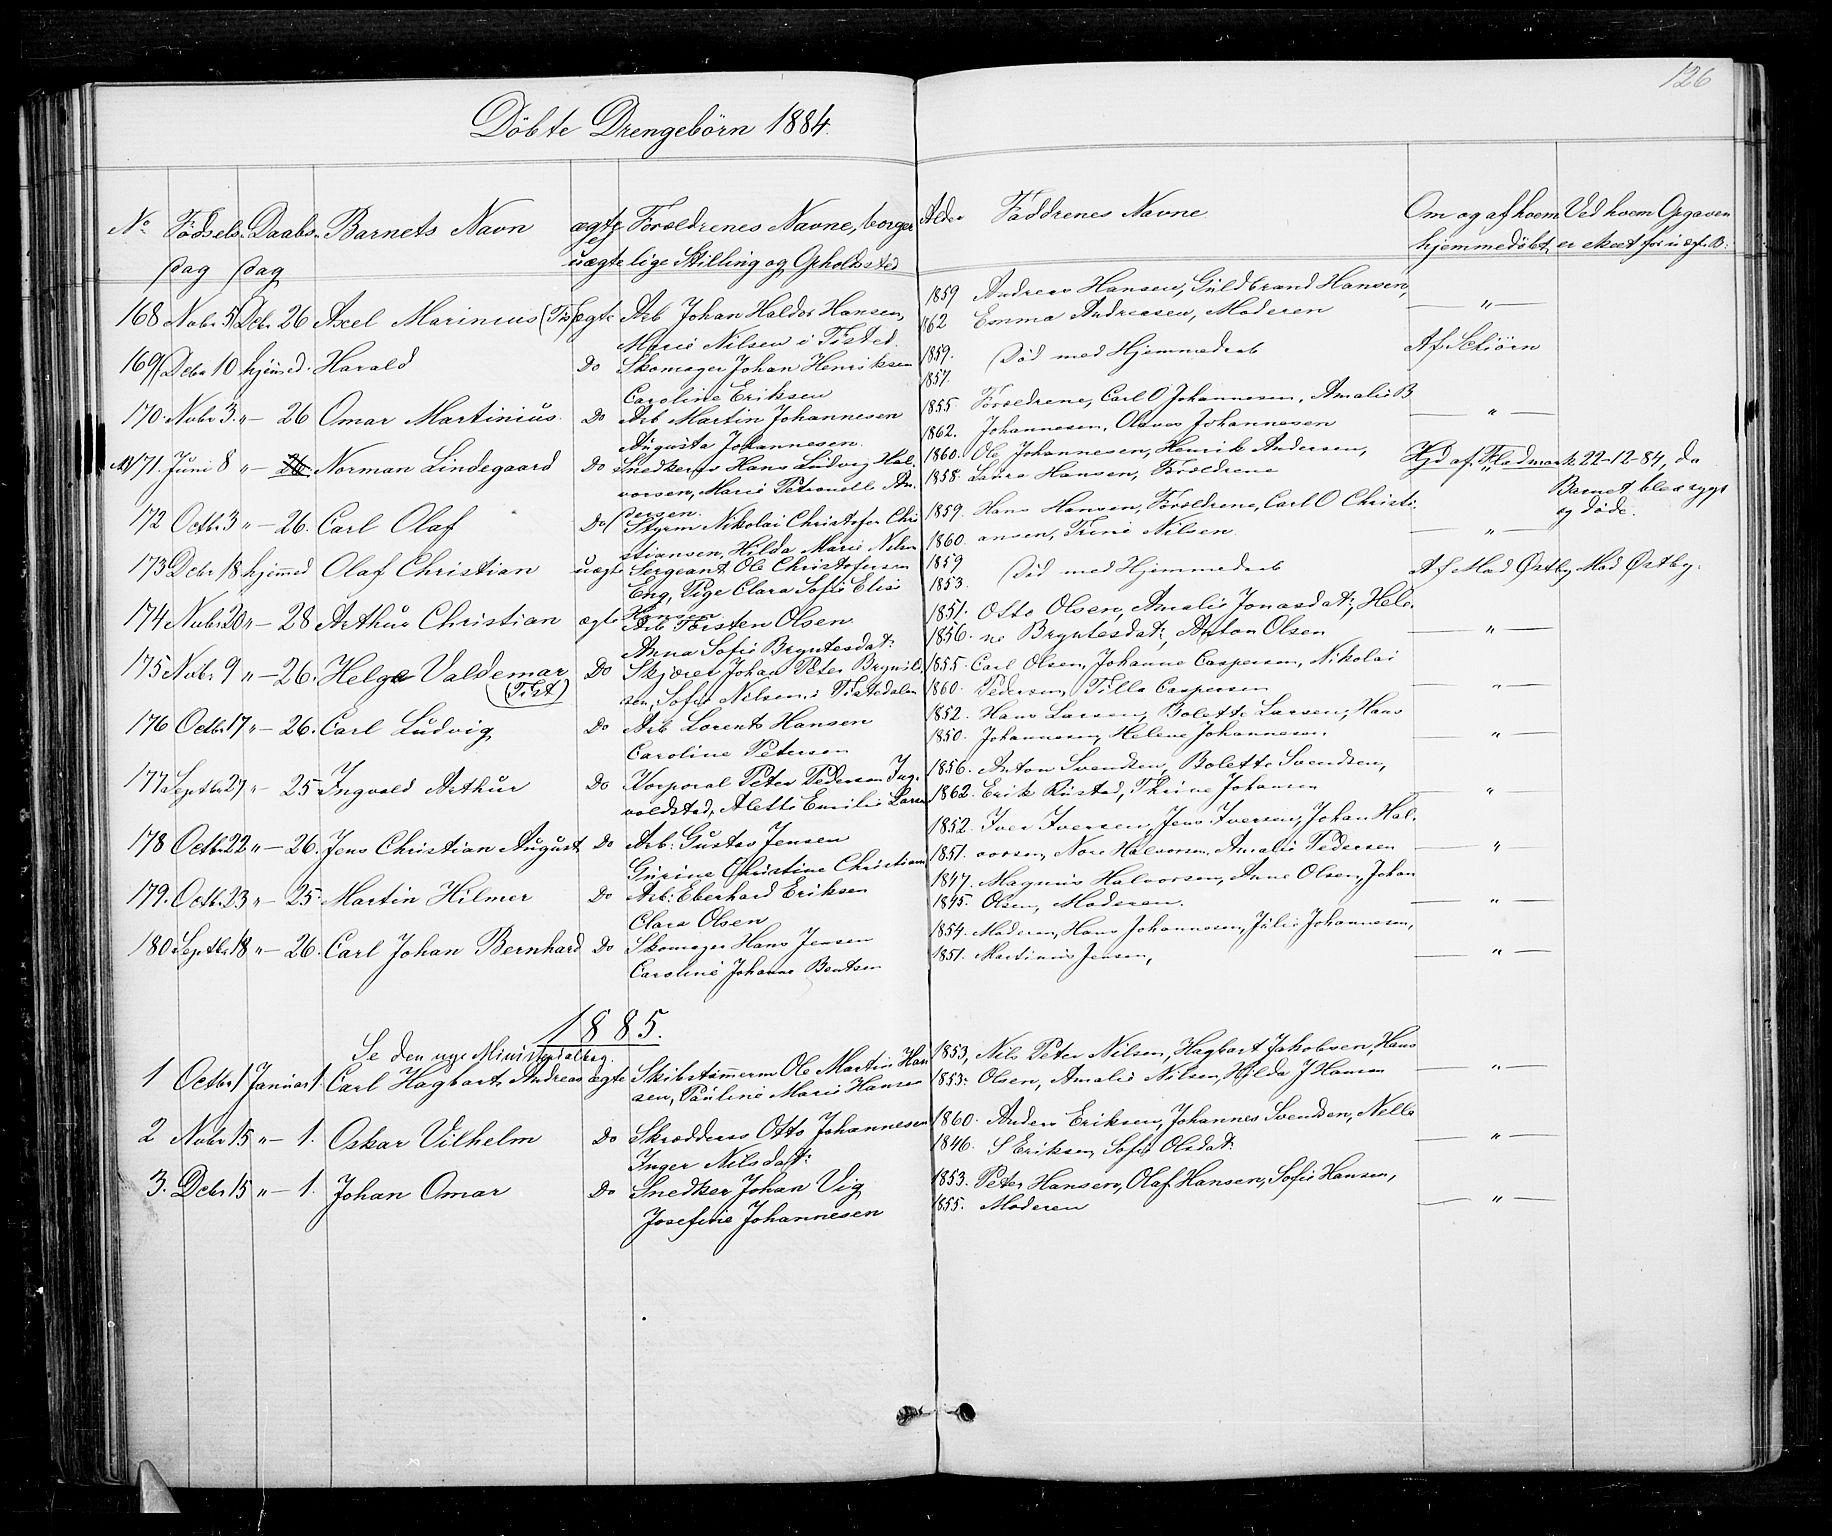 126
Döbte Drengebörn 1884.
No Födsels- Daabs- Barnets Navn ægte Forældrenes Navne, borger Alder Faddrenes Navne Om og af hvem Ved hvem Opgaven
dag dag el uægte lige Stilling og Opholdssted hjemmedöbt. er skeet for uægte B:
168 Nobr 5 Debr 26 Axel Marinius (Tis) ægte Arb Johan Haldor Hansen, 1859 Andreas Hansen, Guldbrand Hansen, — " —
Marie Nilsen i Tisted. 1862 Emma Andreasen, Moderen
169 Debr 10 hjemmed. Harald Do Skomager Johan Henriksen 1859. Död med Hjemmedaab Af Schiörn
Caroline Eriksen 1857.
170. Nobr 3. " — 26 Omar Martinius. Do Arb Martin Johannesen 1855. Forældrene, Carl O Johannesen, Amalie B — " —
Augusta Johannesen. 1862. Johannesen, Olaves Johannesen
171. Juni 8 " — 26. Norman Lindegaard Do Snedkersv Hans Ludvig Hal- 1860. Ole Johannesen, Henrik Andersen, Hjd af Fladmark 22-12-84, da
vorsen, Marie Petronelle An- 1858. Laura Hansen, Forældrene Barnet blev sygt
dersen. og döde.
172 Octb. 3 " — 26. Carl Olaf Do Styrm Nikolai Christofer Chri 1859. Hans Hansen, Forældrene, Carl O Christi- — " —
stiansen, Hilda Marie Nilsen 1860. ansen, Trine Nilsen
173 Debr 18 hjemmed Olaf Christian uægte Sergeant Ole Christofersen 1859 Död med Hjemmedaab Af Mad Østby Mad Østby.
Eng, Pige Clara Sofie Elise 1853.
Hansen
174 Nobr 20 " — 28 Arthur Christian ægte Arb Torsten Olsen 1851. Otto Olsen, Amalie Jonasdat:, Hele- — " —
Anna Sofie Bryntesdat: 1856. ne Bryntesdat:, Anton Olsen
175 Nobr 9 " — 26. Helge Valdemar Do Skjærer Johan Peter Brynild- 1855. Carl Olsen, Johanne Caspersen, Nikolai — " —
(Tist) sen, Sofie Nilsen i Tistedalen 1860. Pedersen, Tilla Caspersen
176 Octb. 17 " — 26. Carl Ludvig Do Arb Lorents Hansen 1852. Hans Larsen, Bolette Larsen, Hans — " —
Caroline Petersen 1850. Johannesen, Helene Johannesen.
177 Septb. 27 " — 25 Ingvald Arthur Do Korporal Peter Pedersen Ing- 1856. Anton Svendsen, Bolette Svendsen, — " —
voldstad, Alette Emilie Larsen 1862. Erik Rustad, Thrine Johansen
178 Octb. 22 " — 26. Jens Christian August Do Arb: Gustav Jensen 1852. Iver Iversen, Jens Iversen, Johan Hal- — " —
Gurine Christine Christians 1851. vorsen, Nora Halvorsen, Amalie Pedersen
179. Octb. 23 " — 25. Martin Hilmer Do Arb: Eberhard Eriksen 1847. Magnus Halvorsen, Anne Olsen, Johan — " —
Clara Olsen 1845. Olsen, Moderen.
180 Septb. 18 " — 26. Carl Johan Bernhard Do Skomager Hans Jensen 1854. Moderen, Hans Johannesen, Julie Johannesen, — " —
Caroline Johanne Bentsen 1851. Martinius Jensen,
1885.
Se den nye Ministerialbog.
1 Octbr 1 Januar 1. Carl Hagbart Andreas ægte Skibstömerm Ole Martin Han 1853, Nils Peter Nilsen, Hagbart Jakobsen, Hans — " —
sen, Pauline Marie Hansen 1853. Olsen, Amalie Nilsen, Hilda J Hansen
2 Nobr 15 " — 1. Oskar Vilhelm Do Skræddersv Otto Johannesen 1860. Anders Eriksen, Johannes Svendsen, Nella — " —
Inger Nilsdat: 1846. S Eriksen, Sofie Olsdat:
3. Debr 15 " — 1. Johan Omar Do Snedker Johan Vig 1853. Peter Hansen, Olaf Hansen, Sofie Hansen, — " —
Josefine Johannesen 1855. Moderen